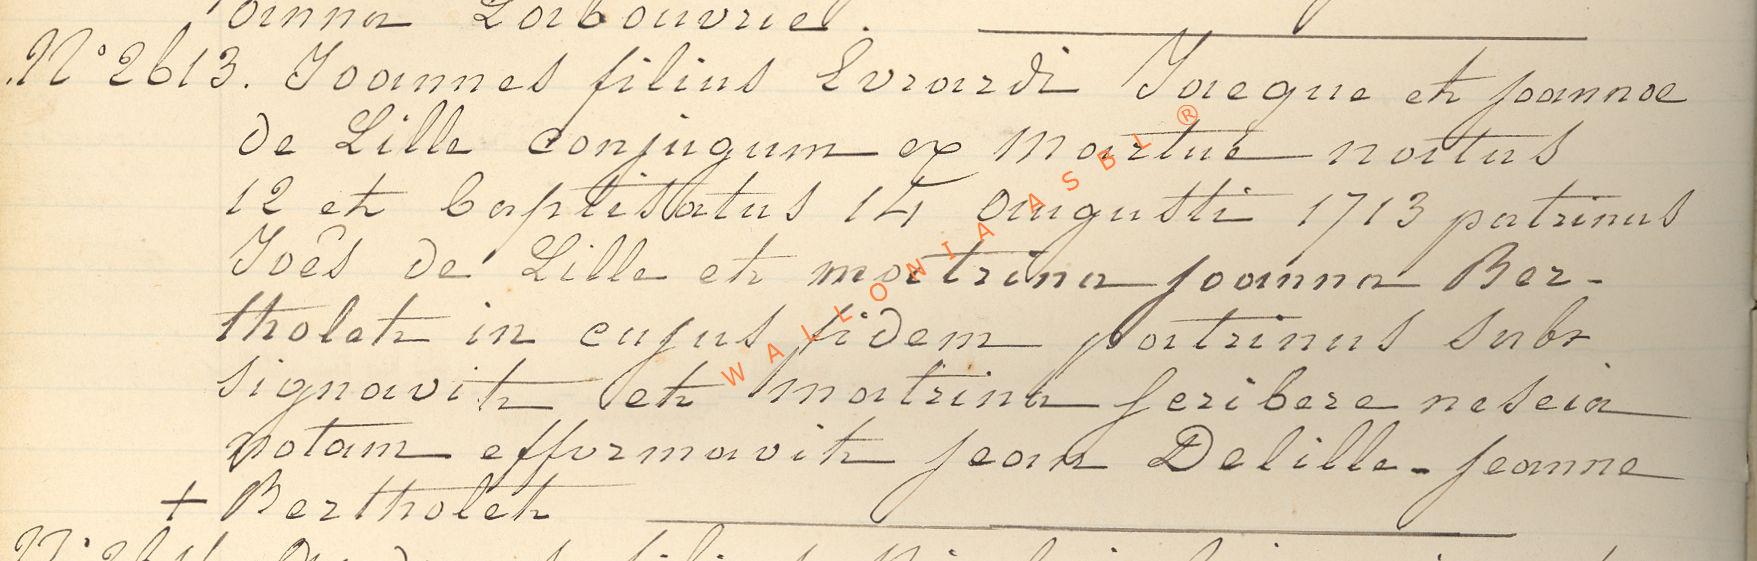 oanna Labouvrie.
N° 2613. Joannes filius Evrardi Jacque et joannae
de Lille conjugum ex Martué natus
12 et baptisatus 14 augusti 1713 patrinus
Joês de Lille et matrina joanna Ber-
tholet in cujus fidem patrinus sub
signavit et matrina scribere nescia
notam efformavit jean Delille - jeanne
+ Bertholet
WALLONIA ASBL ®